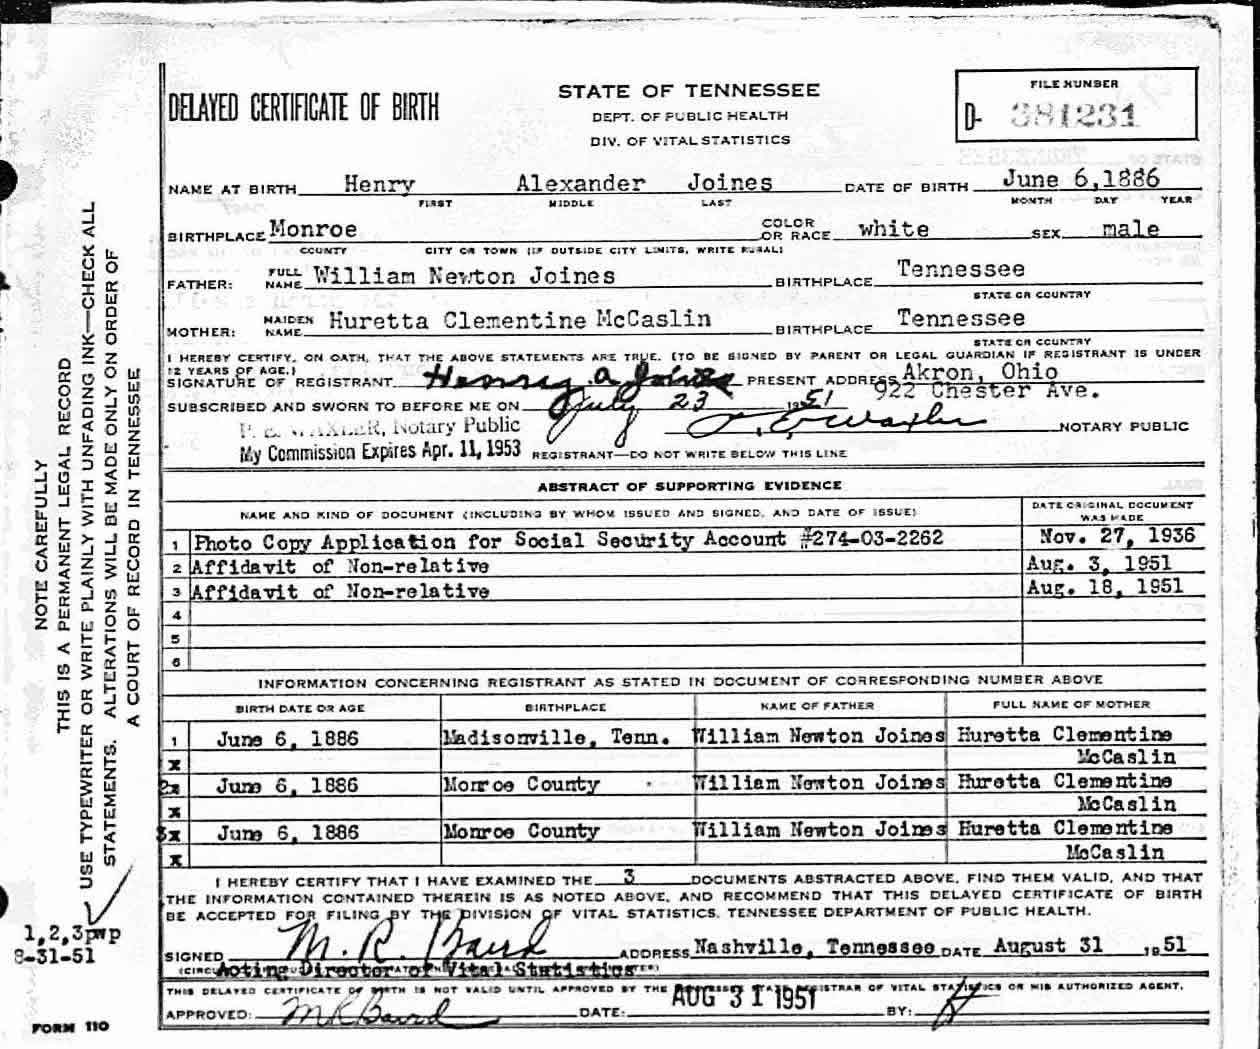 DELAYED CERTIFICATE OF BIRTH
STATE OF TENNESSEE
DEPT. OF PUBLIC HEALTH
DIV. OF VITAL STATISTICS
FILE NUMBER
D- 381231
NAME AT BIRTH Henry Alexander Joines DATE OF BIRTH June 6,1886
FIRST MIDDLE LAST MONTH DAY YEAR
BIRTHPLACE Monroe COLOR OR RACE white SEX male
COUNTY CITY OR TOWN (IF OUTSIDE CITY LIMITS, WRITE RURAL)
FATHER: FULL NAME William Newton Joines BIRTHPLACE Tennessee
STATE OR COUNTRY
MOTHER: MAIDEN NAME Huretta Clementine McCaslin BIRTHPLACE Tennessee
STATE OR COUNTRY
I HEREBY CERTIFY, ON OATH, THAT THE ABOVE STATEMENTS ARE TRUE. (TO BE SIGNED BY PARENT OR LEGAL GUARDIAN IF REGISTRANT IS UNDER
12 YEARS OF AGE.)
SIGNATURE OF REGISTRANT Henry A Joines PRESENT ADDRESS Akron, Ohio
922 Chester Ave.
SUBSCRIBED AND SWORN TO BEFORE ME ON July 23 1951
P. E. WAXLER, Notary Public P. E. Waxler NOTARY PUBLIC
My Commission Expires Apr. 11, 1953 REGISTRANT—DO NOT WRITE BELOW THIS LINE
ABSTRACT OF SUPPORTING EVIDENCE
NAME AND KIND OF DOCUMENT (INCLUDING BY WHOM ISSUED AND SIGNED, AND DATE OF ISSUE) DATE ORIGINAL DOCUMENT WAS MADE
1 Photo Copy Application for Social Security Account #274-03-2262 Nov. 27, 1936
2 Affidavit of Non-relative Aug. 3, 1951
3 Affidavit of Non-relative Aug. 18, 1951
4
5
6
INFORMATION CONCERNING REGISTRANT AS STATED IN DOCUMENT OF CORRESPONDING NUMBER ABOVE
BIRTH DATE OR AGE BIRTHPLACE NAME OF FATHER FULL NAME OF MOTHER
1 June 6, 1886 Madisonville, Tenn. William Newton Joines Huretta Clementine
x McCaslin
2x June 6, 1886 Monroe County William Newton Joines Huretta Clementine
x McCaslin
3x June 6, 1886 Monroe County William Newton Joines Huretta Clementine
x McCaslin
I HEREBY CERTIFY THAT I HAVE EXAMINED THE 3 DOCUMENTS ABSTRACTED ABOVE, FIND THEM VALID, AND THAT
THE INFORMATION CONTAINED THEREIN IS AS NOTED ABOVE, AND RECOMMEND THAT THIS DELAYED CERTIFICATE OF BIRTH
BE ACCEPTED FOR FILING BY THE DIVISION OF VITAL STATISTICS, TENNESSEE DEPARTMENT OF PUBLIC HEALTH.
SIGNED M. R. Baird ADDRESS Nashville, Tennessee DATE August 31 1951
Acting Director of Vital Statistics
THIS DELAYED CERTIFICATE OF BIRTH IS NOT VALID UNTIL APPROVED BY THE REGISTRAR OF VITAL STATISTICS OR HIS AUTHORIZED AGENT.
APPROVED: M R Baird DATE: AUG 31 1951 BY:
NOTE CAREFULLY
THIS IS A PERMANENT LEGAL RECORD
USE TYPEWRITER OR WRITE PLAINLY WITH UNFADING INK—CHECK ALL
STATEMENTS. ALTERATIONS WILL BE MADE ONLY ON ORDER OF
A COURT OF RECORD IN TENNESSEE
1,2,3pwp
8-31-51
FORM 110